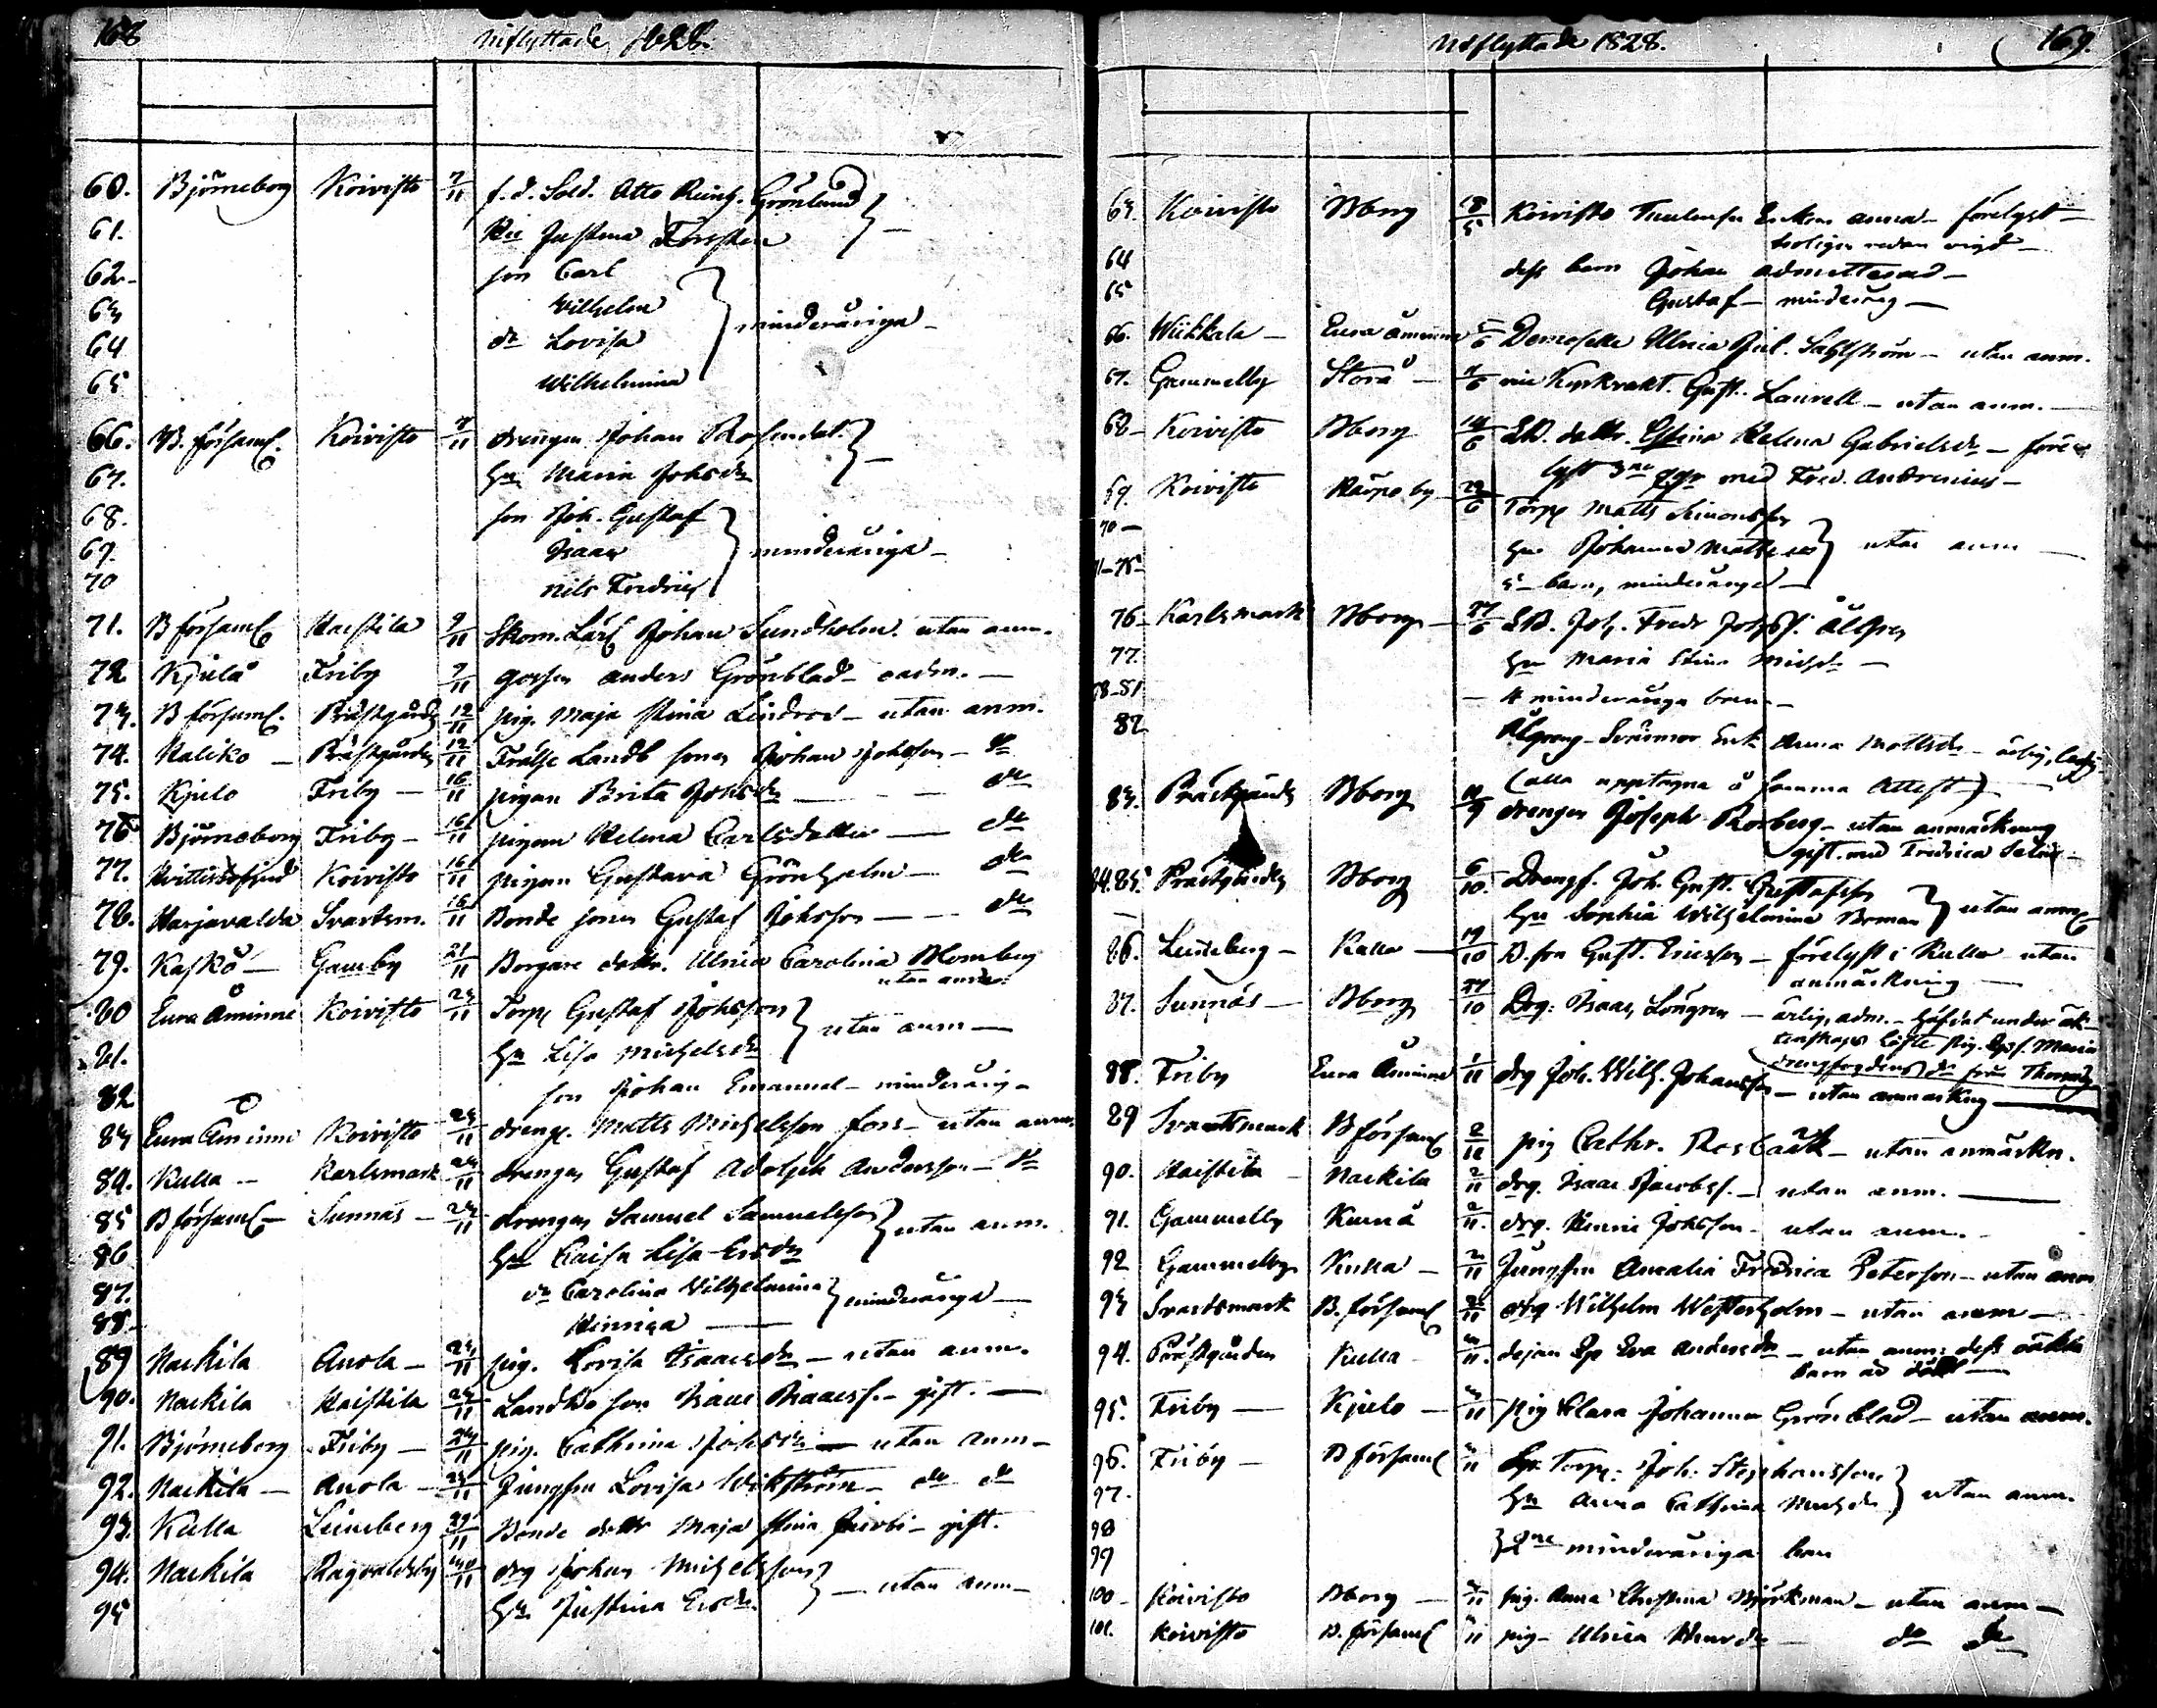 168 Inflyttade 1828.
60. Björneborg Koivisto 7/11 f.d. Sold. Otto Reinh. Grönlund
61. Hu Justina Forssten —
62- son Carl
63 Wilhelm
64 dr Lovisa minderåriga —
65 Wilhelmina
66. B. församl. Koivisto 7/11 drengen Johan Rosendal
67. Hu Maria Johsdr —
68. son Joh. Gustaf
69. Isaac minderåriga —
70 Nils Fredric
71. B församl Haistila 9/11 Skom. Lärl Johan Sundholm. utan anm.
72 Kjulå Friby 9/11 gossen Anders Grönblad — oadm. —
73. B församl. Prästgård 12/11 pig. Maja Stina Lindroos — utan anm.
74. Naliko — Prästgården 12/11 Frälse Landb sonen Johan Johsson — do
75. Kjulo Friby — 16/11 pigan Brita Johsdr — — do
76 Björneborg Friby — 16/11 pigan Helena Carlsdotter — do
77. Koivisto 16/11 pigan Gustava Grönholm — do
78. Harjavalda Svartsm. 16/11 Bonde sonen Gustaf Johsson — — do
79. Kaskö — Gamby 21/11 Borgare dottr. Ulrica Carolina Blomberg
utan anm.
80 Eura Åminne Koivisto 23/11 Torp Gustaf Johsson
81. Hu Lisa Michelsdr utan anm —
82 son Johan Emanuel — minderårig —
83 Eura Åminne Koivisto 23/11 dreng. Matts Michelsson Fors — utan anm.
84. Kulla — Karlsmark 23/11 drengen Gustaf Adolph Andersson — do
85 B församl — Sunnäs — 23/11 drengen Samuel Samuelsson
86 Hu Caisa Lisa Ersdr utan anm.
87. dr Carolina Wilhelmina minderåriga —
88 — Hinrica —
89 Nackila Anola — 23/11 pig. Lovisa Isaacsdr — utan anm.
90. Nackila Haistila 23/11 Landbo son Isaac Isaacss. — gift. —
91. Björneborg Friby — 23/11 pig. Cathrina Johsdr — utan anm —
92. Nackila — Anola — 23/11 Jungfru Lovisa Wikström — do do
93. Kulla Leineberg 29/11 Bonde dottr Maja Stina Jacobi — gift.
94. Nackila Ragvaldsby 30/11 drg Johan Michelsson
95 Hu Justina Ersdr — utan anm —
Utflyttade 1828. 169.
63. Koivisto Bborg 18/5 Koivisto Enkan Anna — förelyst —
troligen redan vigd —
64 dess barn Johan admitterad —
65 Gustaf — minderårig —
66. Wiikkala — Eura Åminne 5/6 Demoiselle Ulrica Sahlström — utan anm.
67. Gammelby Storå — Gust. Laurell — utan anm. —
68 — Koivisto Bborg 14/6 dottr. Helena Gabrielsdr — före
lyst 3ne ggr med Fred. Andrenius —
69. Koivisto by 29/6 Torp Matts Simonsson
70 — Hu Johanna Mattsdr utan anm —
71-75 5 — barn, minderåriga —
76 — Karlsmark Bborg — 27/6 Joh. Fredr Johss. Ålgren
77. Hu Maria Stina Michsdr —
78-81 — 4 minderåriga barn —
82 Ålgrens Svärmor Enk Anna Mattsdr — ärlig, ledig
(alla upptagna å samma Attest) —
83. Prästgård Bborg 11/9 drengen Joseph Rosberg — utan anmärkning
gift. med Fredrica
84.85. Prästgården Bborg 6/10. Drengs. Joh. Gust. Gustafsson
Hu Sophia Wilhelmina Boman utan anm
86. Leineberg — Kulla — 19/10 B. son Gust. Ericsson — förelyst i Kulla utan
anmärkning —
87. Sunnäs — Bborg 27/10 Drg: Isaac Löngren — ärlig, adm. — häfdat under äk-
tenskaps löfte pig. Maria
88. Friby Eura Åminne 1/11 drg Joh. Wilh. Johansson — utan anmärkng —
89 Svartsmark B församl 2/11 pig Cathr. Rosbäck — utan anmärkn.
90. Haistila — Nackila 2/11 drg. Isaac Jacobss. — utan anm. —
91. Gammelby Kumå 2/11. drg. Henric Johsson — utan anm. —
92 Gammelby Kulla — 2/11 Jungfru Amalia Fredrica Peterson — utan anm
93 Svartsmark B. församl 2/11 drg Wilhelm Westerholm — utan anm —
94. Prästgården Kulla 11. Eva Andersdr — utan anm: dess oäkta
barn är död —
95. Friby — Kjulo — 11 pig Clara Johanna Grönblad — utan anm.
96. Friby — B församl 11 Torp: Joh. Stephansson
97. Hu Anna Cathrina Michsdr utan anm.
98
99 2ne minderåriga barn
100 — Koivisto Bborg — 11 pig. Anna Christina Björkman — utan anm —
101. Koivisto B. församl 11 pig — Ulrica — do do